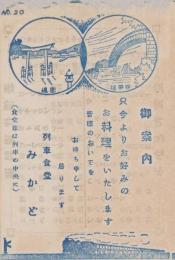 NO. 20
御案内
只今よりお好みの
お料理をいたします
皆様のおいでを
お待ち申して
居ります
列車食堂
みかど
(食堂車は列車の中央に)